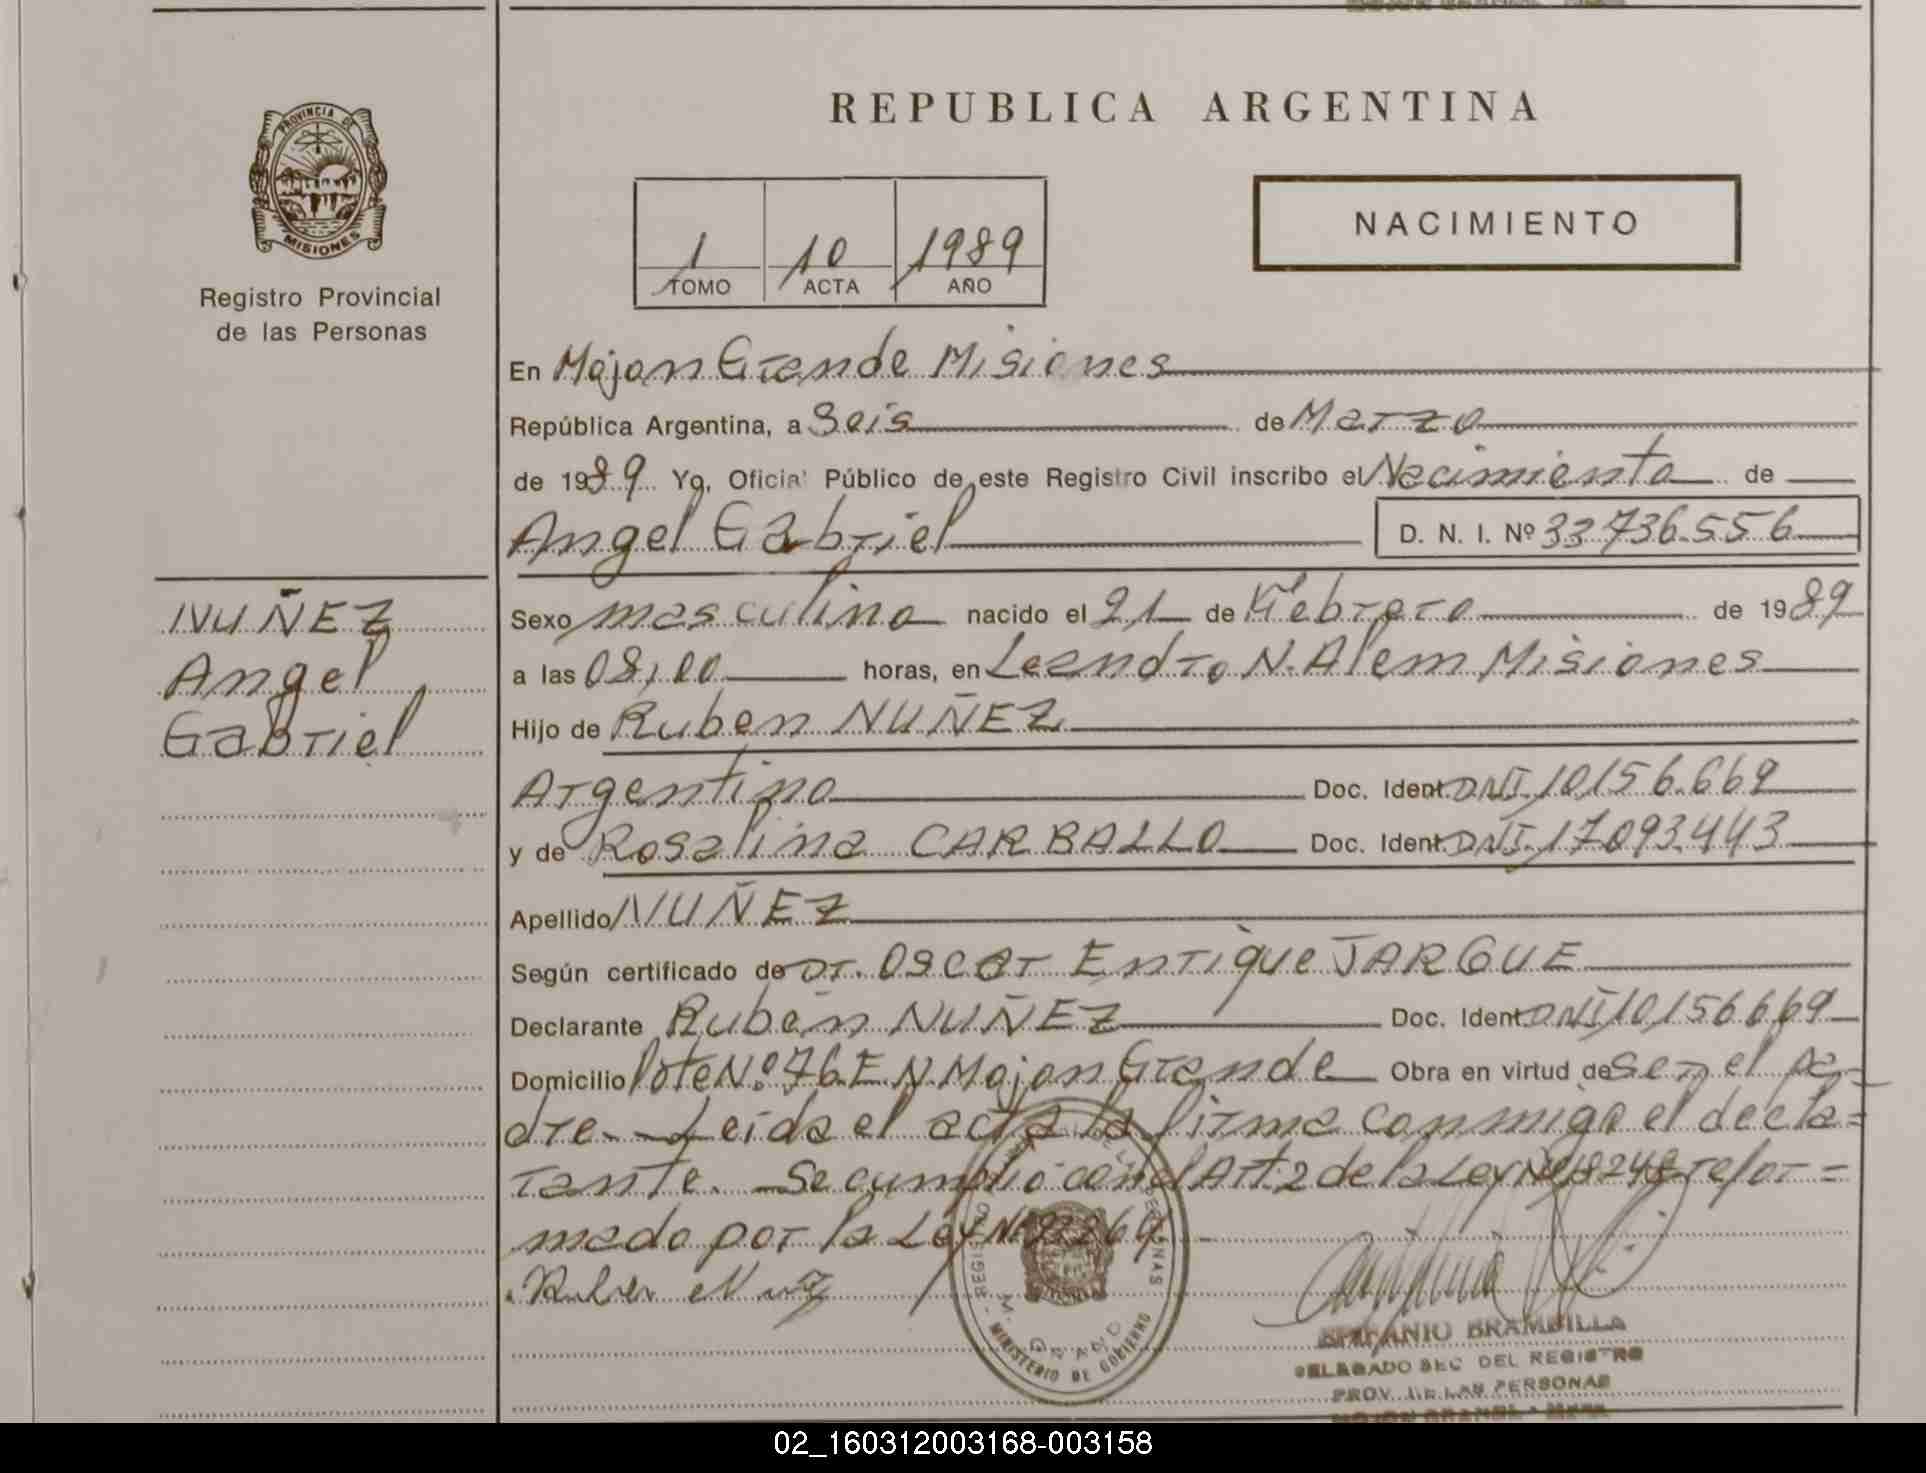 REPUBLICA ARGENTINA
PROVINCIA DE
MISIONES
Registro Provincial
de las Personas
1 10 1989
TOMO ACTA AÑO
NACIMIENTO
En Mojon Grande Misiones
República Argentina, a Seis de Marzo
de 1989 Yo, Oficial Público de este Registro Civil inscribo el Nacimiento de
Angel Gabriel D. N. I. Nº 33736.556
NUÑEZ
Angel
Gabriel
Sexo masculino nacido el 21 de Febrero de 1989
a las 08,00 horas, en Leandro N. Alem Misiones
Hijo de Ruben NUÑEZ
Argentino Doc. Ident. DNI. 10156.669
y de Rosalina CARBALLO Doc. Ident. DNI. 17093.443
Apellido NUÑEZ
Según certificado de Dr. Oscar Enrique JARQUE
Declarante Ruben NUÑEZ Doc. Ident. DNI 10156669
Domicilio lote Nº 76 E N. Mojon Grande Obra en virtud de ser el pa-
dre. Leída el acta la firma conmigo el decla=
rante. Se cumplió con el Art. 2 de la Ley Nº 18248 refor=
mado por la Ley Nº
Ruben Nuñez
MINISTERIO DE GOBIERNO
EPIFANIO BRAMBILLA
DELEGADO SEC DEL REGISTRO
PROV. DE LAS PERSONAS
MOJON GRANDE - Mnes.
02_160312003168-003158